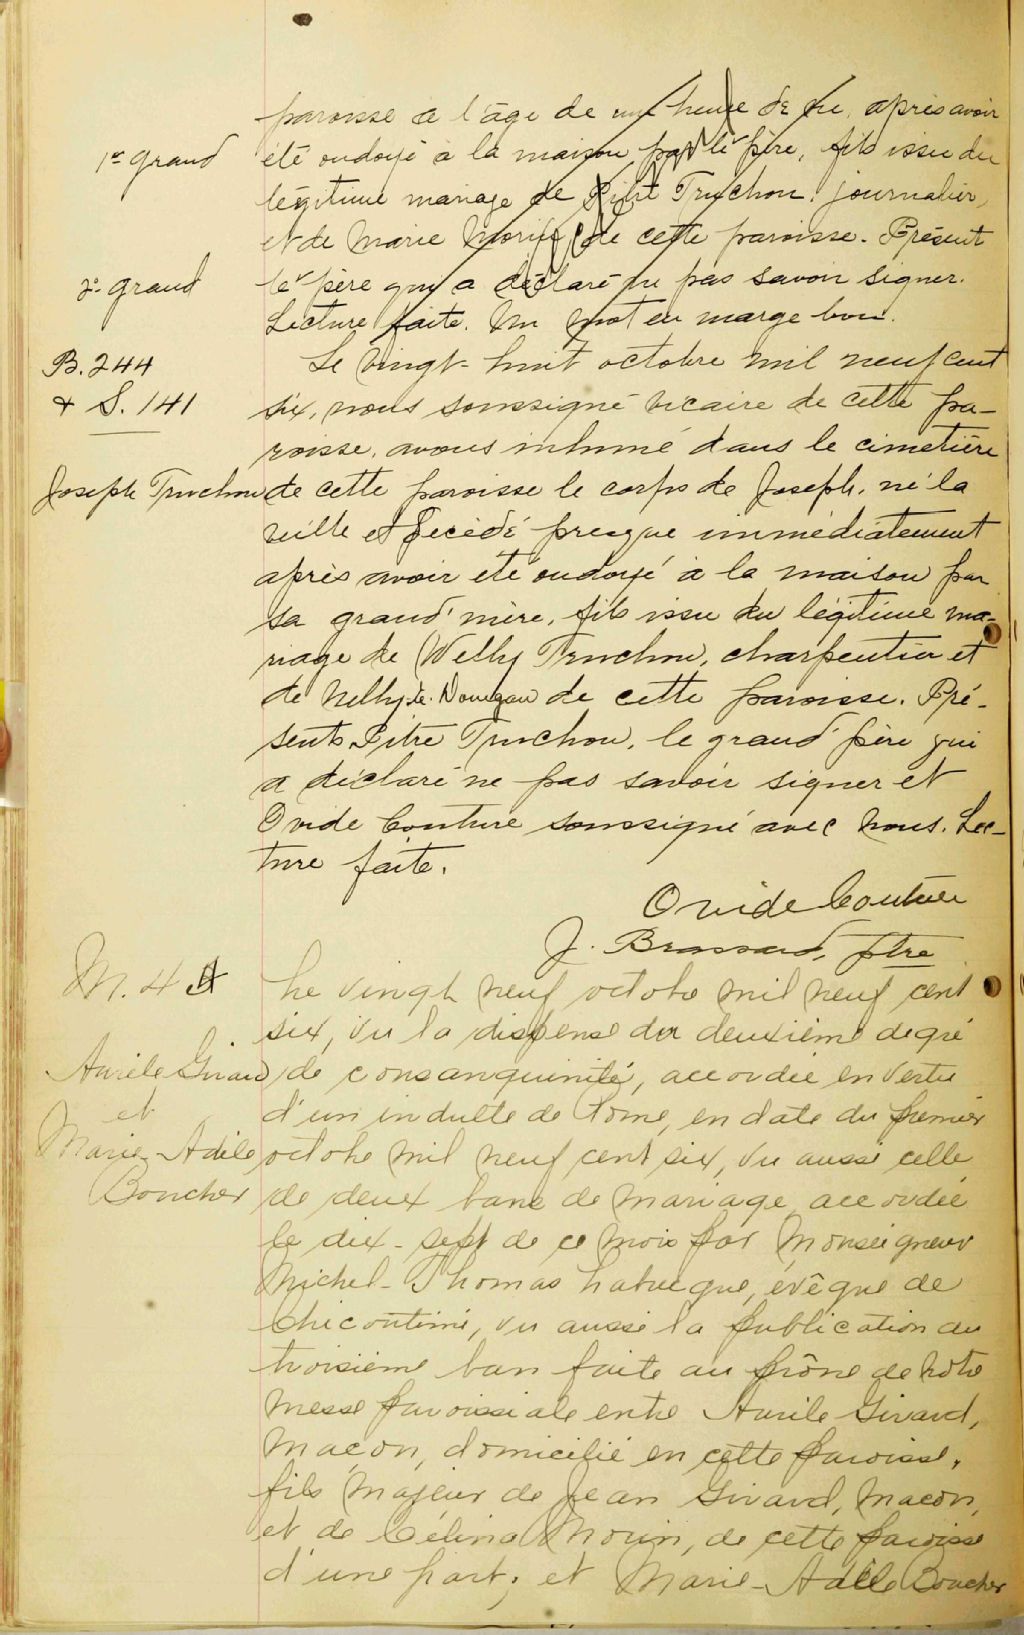 paroisse à l'âge de une heure de vie, après avoir
1er grand
été ondoyé à la maison par le père, fils issu du
légitime mariage de Pitre Truchon, journalier,
et de Marie Morin de cette paroisse. Présent
2e grand
le père qui a déclaré ne pas savoir signer.
Lecture faite. Un mot en marge bon.
B. 244
& S. 141
Joseph Truchon
Le vingt-huit octobre mil neuf cent
six, nous soussigné vicaire de cette pa-
roisse, avons inhumé dans le cimetière
de cette paroisse le corps de Joseph, né la
veille et décédé presque immédiatement
après avoir été ondoyé à la maison par
sa grand'mère, fils issu du légitime ma-
riage de Welly Truchon, charpentier et
de Nelly de cette paroisse. Pré-
sents Pitre Truchon, le grand'père qui
a déclaré ne pas savoir signer et
Ovide Couture soussigné avec nous. Lec-
ture faite.
Ovide Couture
J. Brassard, ptre
M. 44
Aurèle Girard
et
Marie-Adèle
Boucher
Le vingt neuf octobre mil neuf cent
six, vu la dispense du deuxième degré
de consanguinité, accordée en vertu
d'un indulte de Rome, en date du premier
octobre mil neuf cent six, vu aussi celle
de deux bans de mariage accordée
le dix-sept de ce mois par Monseigneur
Michel-Thomas Labrecque, évêque de
Chicoutimi, vu aussi la publication du
troisième ban faite au prône de notre
messe paroissiale entre Aurèle Girard,
maçon, domicilié en cette paroisse,
fils majeur de Jean Girard, maçon,
et de Célina Morin, de cette paroisse
d'une part; et Marie-Adèle Boucher